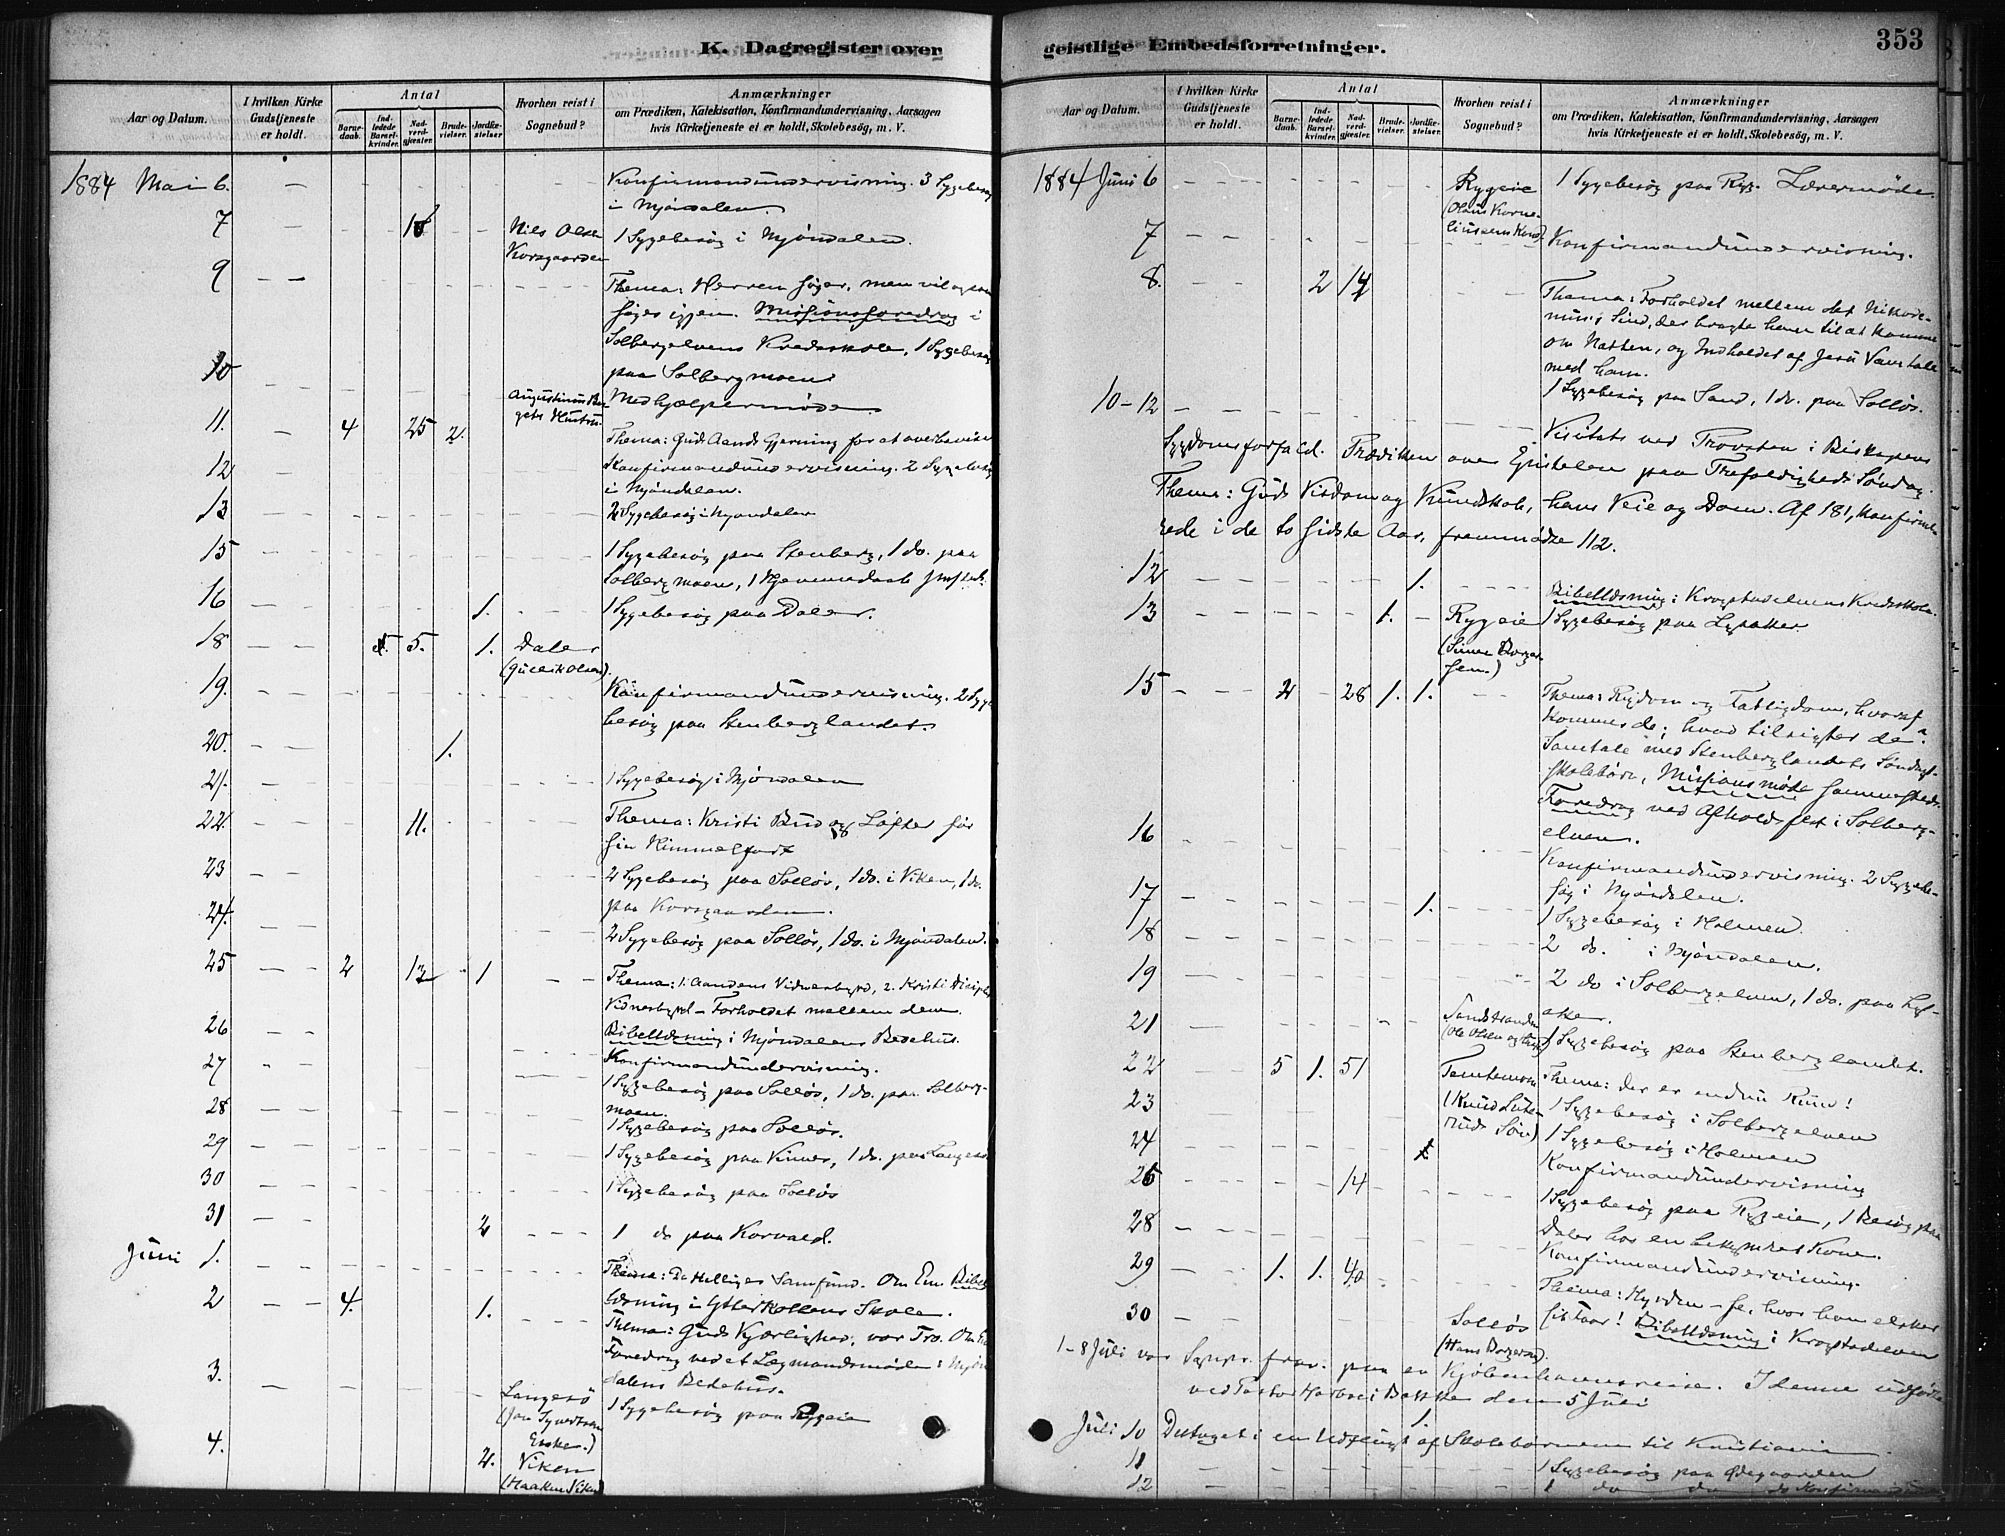 K. Dagregister over
Aar og Datum.
I hvilken Kirke Gudstjeneste er holdt.
Antal
Barne-daab.
Ind-ledede Barsel-kvinder.
Nad-verd-gjæster.
Brude-vielser.
Jordfæ-stelser
Hvorhen reist i Sognebud?
Anmærkninger
om Prædiken, Katekisation, Konfirmandundervisning, Aarsagen
hvis Kirketjeneste ei er holdt, Skolebesög, m. V.
1884 Mai 6. Konfirmandundervisning. 3 Sygebesøg
i Mjøndalen.
7 Nils Olsen 1 Sygebesøg i Mjøndalen.
Korsgaarden
9 Thema: Herren søger, men vil ogsaa
søges igjen. Missionsforedrag i
Solbergelvens Kredsskole, 1 Sygebesøg
10 paa Solbergmoen
Medhjælpermøde
11. 4 25 2.
Thema: Guds Aands Gjerning for at overbevise
12 Konfirmandundervisning. 2 Sygebesøg
i Mjøndalen.
13 2 Sygebesøg i Mjøndalen
15 1 Sygebesøg paa Stenberg, 1 do. paa
Solbergmoen, 1 Hjemmedaab
16 1. 1 Sygebesøg paa Daler.
18 5. 1. Daler
19. Konfirmandundervisning. 2 Syge-
besøg paa Stenberglandet.
20. 1.
21. 1 Sygebesøg i Mjøndalen
22. 11. Thema: Kristi Bud og Løfter før
sin Himmelfart
23 2 Sygebesøg paa Solløs, 1 do. i Viken, 1 do.
paa Korsgaarden.
24. 2 Sygebesøg paa Solløs, 1 do. i Mjøndalen.
25 2 13 1 Thema: 1. Aandens Vidnesbyrd, 2. Kristi Disciples
Vidnesbyrd – Forholdet mellem dem.
26 Bibellæsning i Mjøndalens Bedehus.
27 Konfirmandundervisning.
1 Sygebesøg paa Solløs, 1 do. paa Solberg-
28 moen.
1 Sygebesøg paa Solløs.
29 1 Sygebesøg paa Vinnes, 1 do. paa Langesø
30 1 Sygebesøg paa Solløs
31 2 1 do paa Korvald.
Juni 1. Thema: De Helliges Samfund. Om Em. Bibel-
2 4. 1. læsning i Ytterkollens Skole.
Thema: Guds Kjærlighed, vor Tro. Om Em
3. Foredrag ved et Lægmandsmøde i Mjøn-
dalens Bedehus.
Langesø 1 Sygebesøg paa Rygeie
4. 2. Viken
(Haaken Viken)
geistlige Embedsforretninger.
353
Aar og Datum.
I hvilken Kirke Gudstjeneste er holdt.
Antal
Barne-daab.
Ind-ledede Barsel-kvinder.
Nad-verd-gjæster.
Brude-vielser.
Jordfæ-stelser.
Hvorhen reist i Sognebud?
Anmærkninger
om Prædiken, Katekisation, Konfirmandundervisning, Aarsagen
hvis Kirketjeneste ei er holdt, Skolebesög, m. V.
1884 Juni 6 Rygeie 1 Sygebesøg paa Ryg. Lærermøde
(Olaus Korne-
7 liussens Kone). Konfirmandundervisning.
8. 2 14 Thema: Forholdet mellem det Nikode-
mus's Sind, der bragte ham til at komme
om Natten, og Indholdet af Jesu Samtale
med ham.
1 Sygebesøg paa Sand, 1 do. paa Solløs.
10-12 Visitats ved Provsten i Biskopens
Sygdomsforfald. Prædiken over Epistelen paa Trefoldigheds Søndag.
Thema: Guds Visdom og Kundskab, hans Veie og Dom. Af 181, konfirme-
rede i de to sidste Aar, fremmødte 112.
12 1. Bibellæsning i Krogstadelvens Kredsskole.
13 1. Rygeie 1 Sygebesøg paa Lysaker.
15 2 28 1. 1. Thema: Rigdom og Fattigdom, hvoraf
kommer de; hvad tilsigter de?
Samtale med Stenberglandets Søndags-
skolebørn, Missionsmøde sammesteds.
Foredrag ved Afholdsfest i Solberg-
16 elven.
Konfirmandundervisning. 2 Sygebe-
17 1. søg i Mjøndalen.
18 1 Sygebesøg i Holmen.
2 do. i Mjøndalen.
19 2 do i Solbergelven, 1 do. paa Lys-
aker.
21 Sandstranden
1 Sygebesøg paa Stenberglandet.
22 5 1. 51 Thema: der er endnu Rum!
23 1 Sygebesøg i Solbergelven
24 1 Sygebesøg i Holmen
Konfirmandundervisning
26 14 1 Sygebesøg paa Rygeie, 1 Besøg paa
28 Daler hos en bekymret Kone.
Konfirmandundervisning.
29 1. 1. 40 Thema: Hyrden – Se, hvor han elsker
30 Solløs sit Faar! Bibellæsning i Krogstadelven
(Hans Borgersen).
1-8 Juli var Sognepr. frav. paa en Kjøbenhavnsreise. I denne udførte
ved Pastor den 5 Juli
1.
Juli 10 Deltaget i en Udflugt af Skolebørnene til Kristiania
11 1 Sygebesøg paa Ødegaarden
12 1 do do do Konfirmandund